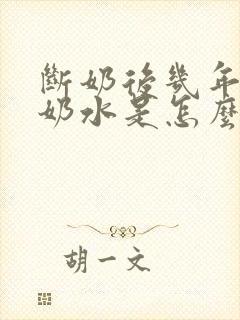 斷奶後幾年
奶水是怎麼
胡一文